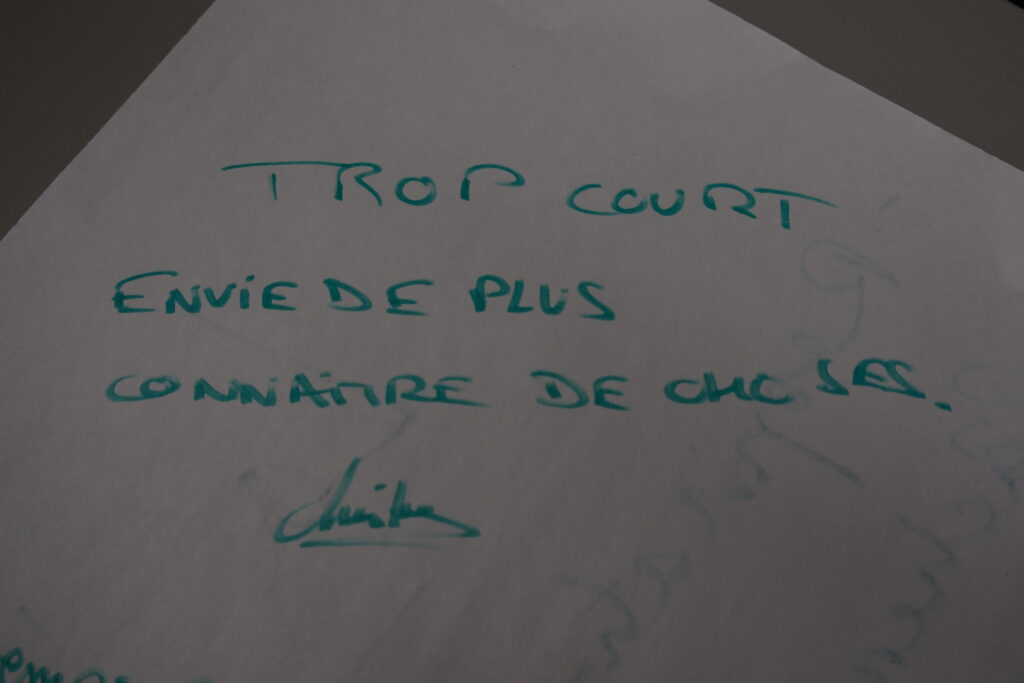 TROP COURT
ENVIE DE PLUS
CONNAITRE DE CHOSES.